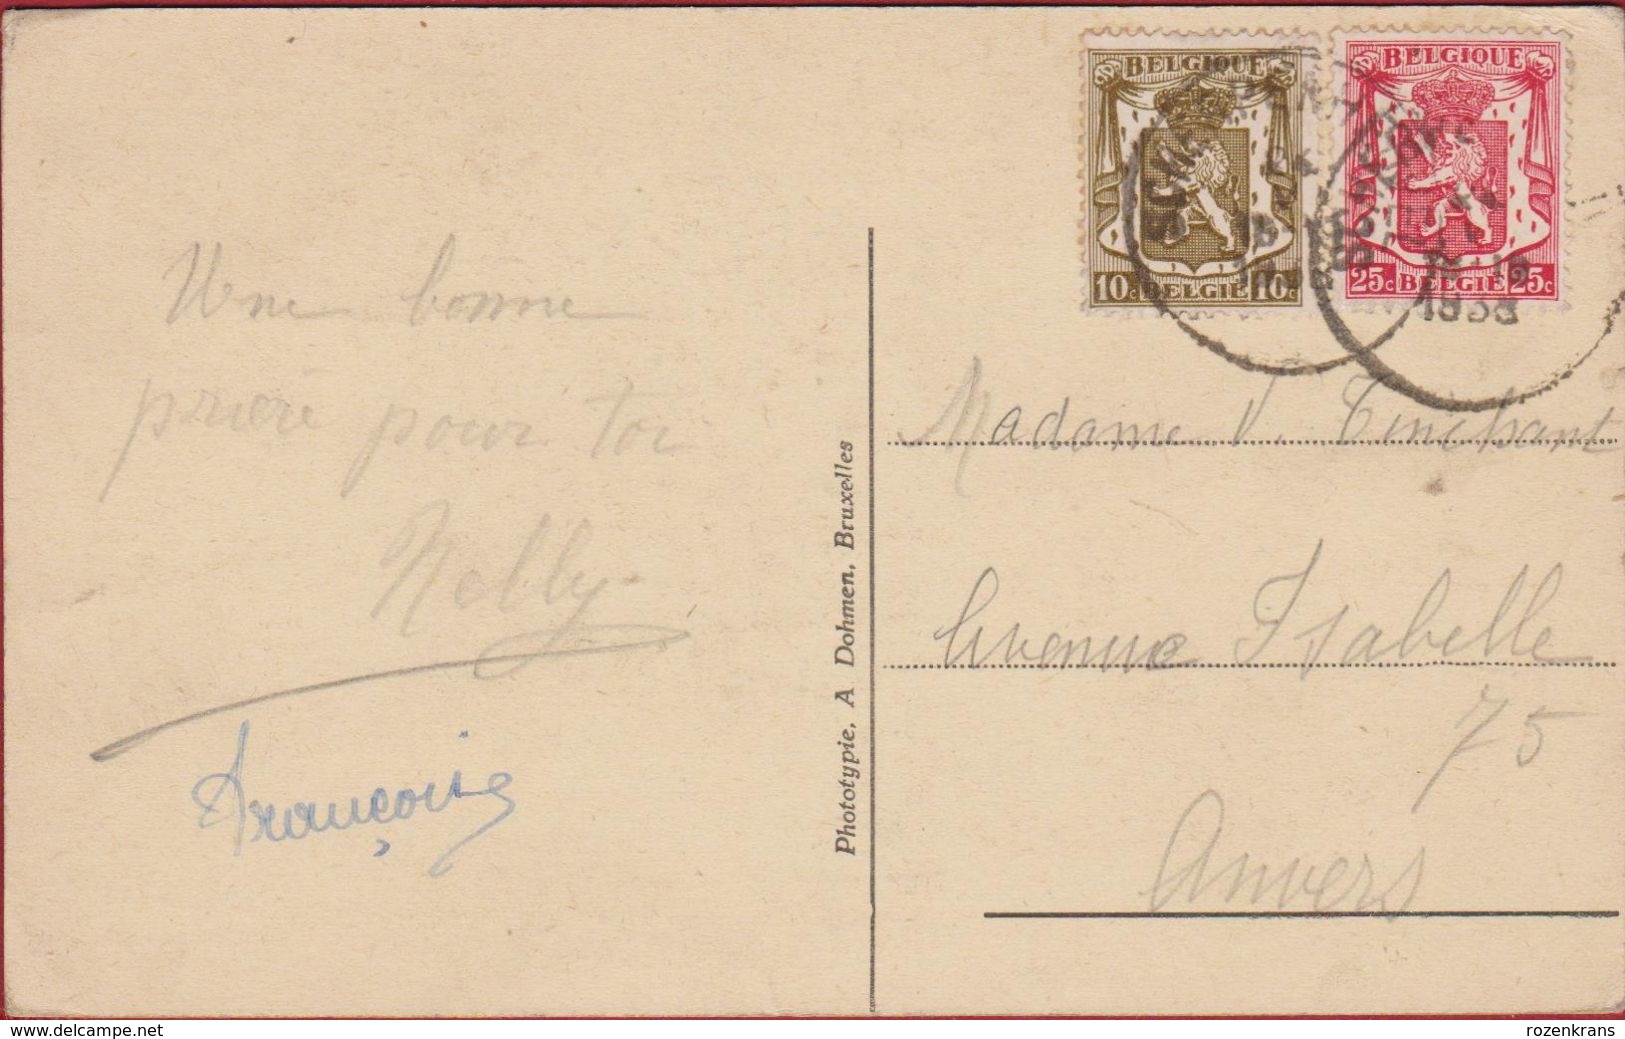 Une bonne
prière pour toi
Nelly
Françoise
Phototypie. A Dohmen, Bruxelles
BELGIQUE
10c BELGIE 10c
BELGIQUE
25c BELGIE 25c
1938
Madame V. Tinchant
Avenue Isabelle
75
Anvers
www.delcampe.net
rozenkrans